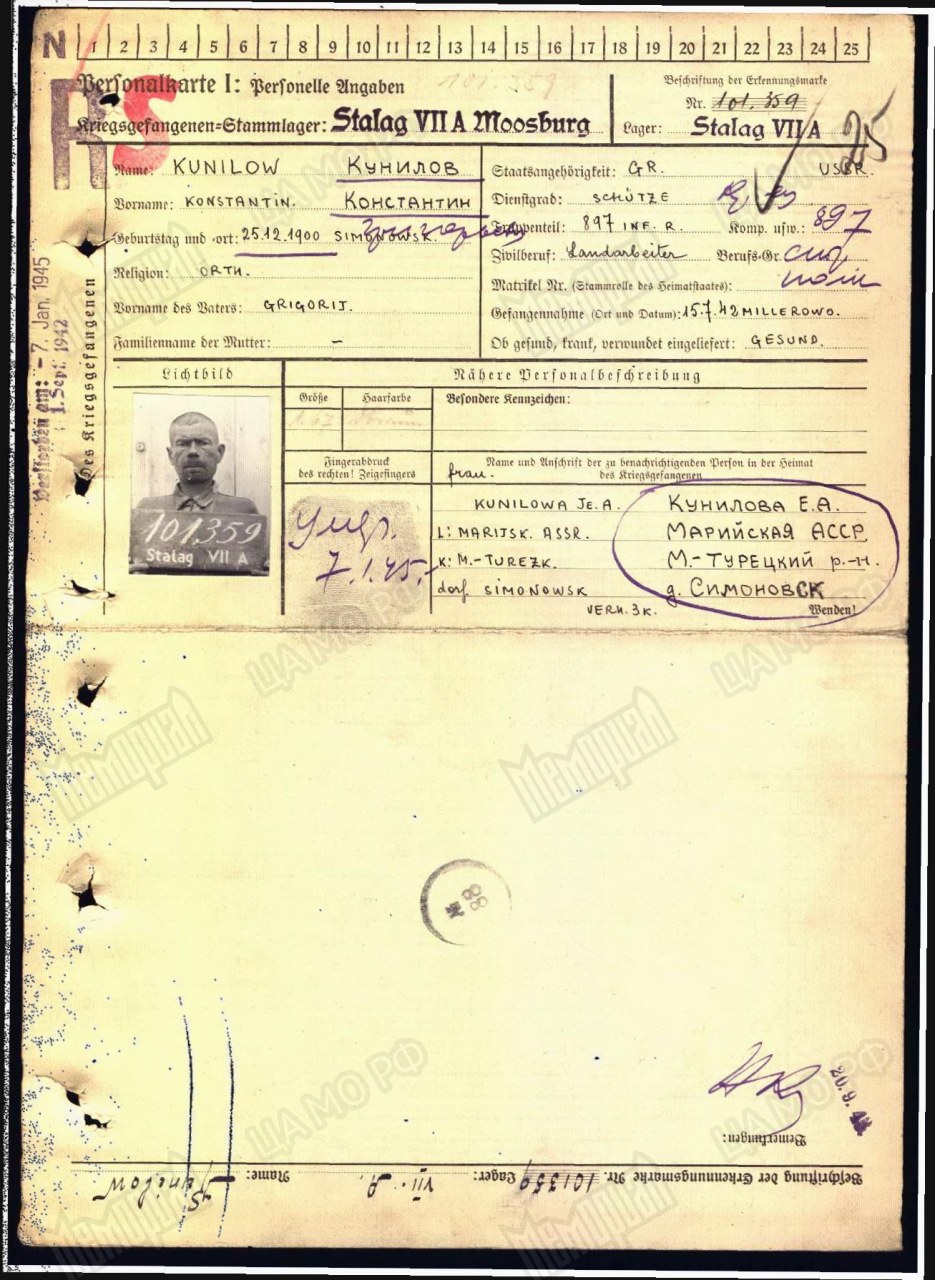 N 1 2 3 4 5 6 7 8 9 10 11 12 13 14 15 16 17 18 19 20 21 22 23 24 25
RS
Personalkarte I: Personelle Angaben
101.359
Kriegsgefangenen=Stammlager: Stalag VII A Moosburg
Beschriftung der Erkennungsmarke
Nr. 101.359
Lager: Stalag VII A
25
Name: KUNILOW КУНИЛОВ
Vorname: KONSTANTIN. КОНСТАНТИН
Geburtstag und =ort: 25.12.1900 SIMONOWSK.
Religion: ORTH.
Vorname des Vaters: GRIGORIJ.
Familienname der Mutter: –
Staatsangehörigkeit: GR. USSR.
Dienstgrad: SCHÜTZE
Truppenteil: 897 INF. R. Komp. usw.: 897
Zivilberuf: Landarbeiter Berufs=Gr.
Matrikel Nr. (Stammrolle des Heimatstaates):
Gefangennahme (Ort und Datum): 15.7.42 MILLEROWO.
Ob gesund, krank, verwundet eingeliefert: GESUND.
Des Kriegsgefangenen
Verstorben am: – 7. Jan. 1945
1. Sept. 1942
Lichtbild
101,359
Stalag VII A
Nähere Personalbeschreibung
Größe Haarfarbe
Besondere Kennzeichen:
Fingerabdruck
des rechten! Zeigefingers
умер.
7.1.45.
Name und Anschrift der zu benachrichtigenden Person in der Heimat
des Kriegsgefangenen
frau.
KUNILOWA JE.A. КУНИЛОВА Е.А.
L: MARIJSK. ASSR. МАРИЙСКАЯ АССР,
K: M.-TUREZK. М.-ТУРЕЦКИЙ р.-н.
dorf SIMONOWSK д. СИМОНОВСК
VERH. 3K.
Wenden!
Bemerkungen:
Beschriftung der Erkennungsmarke Nr. 101359 Lager: VII. A. Name: Kunilow
Мемориал
ЦАМО РФ